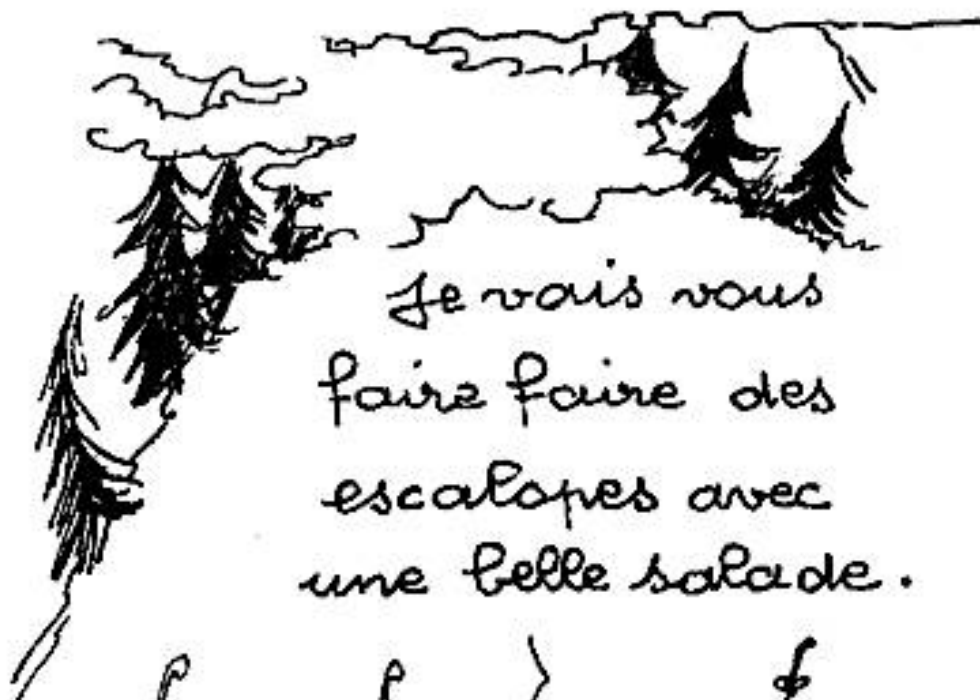 Je vais vous
faire faire des
escalopes avec
une belle salade.